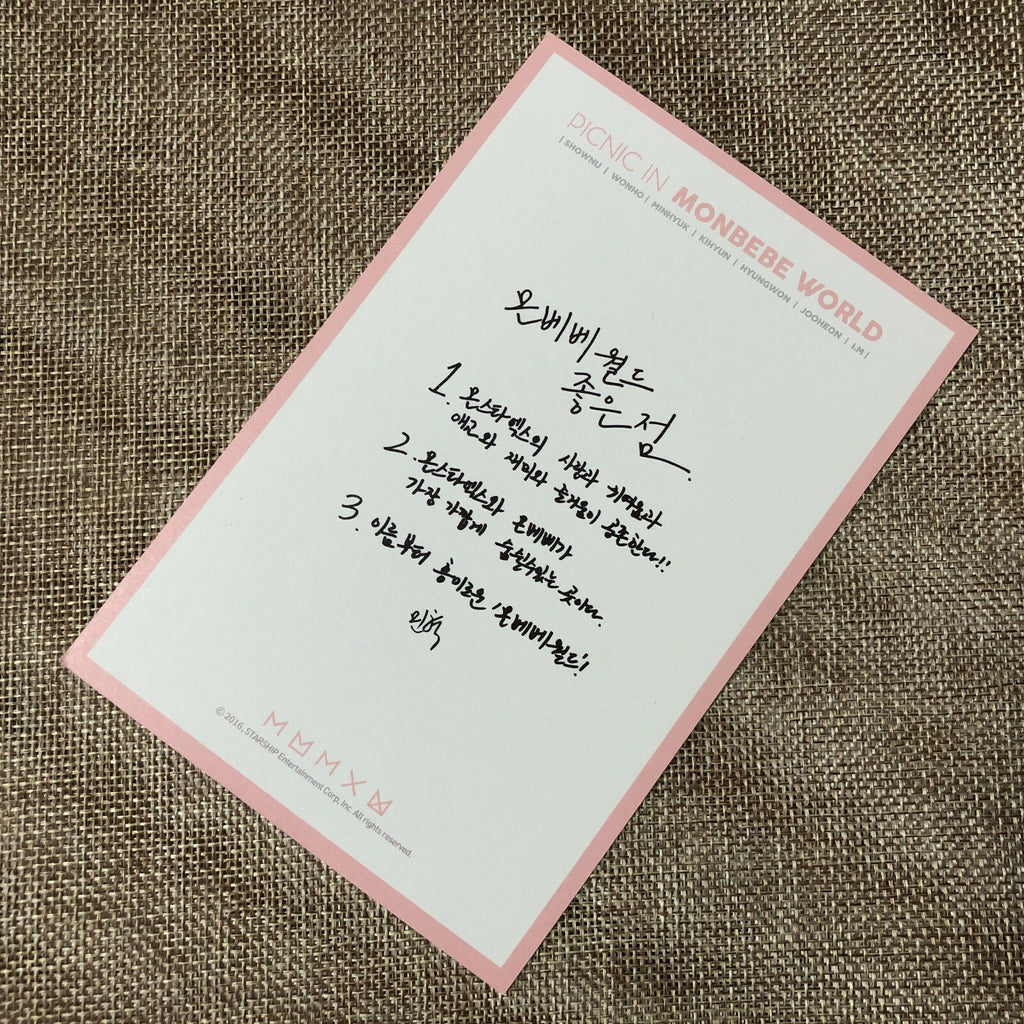 PICNIC IN MONBEBE WORLD
| SHOWNU | WONHO | MINHYUK | KIHYUN | HYUNGWON | JOOHEON | I.M |
몬베베 월드
좋은 점.
1. 몬스타엑스의 사랑과 귀여움과
애교와 재미와 즐거움이 공존한다!!
2. 몬스타엑스와 몬베베가
가장 가깝게 숨쉴수있는 곳이다.
3. 이름부터 흥미로운 '몬베베월드'!
민혁
© 2016. STARSHIP Entertainment Corp, Inc. All rights reserved.